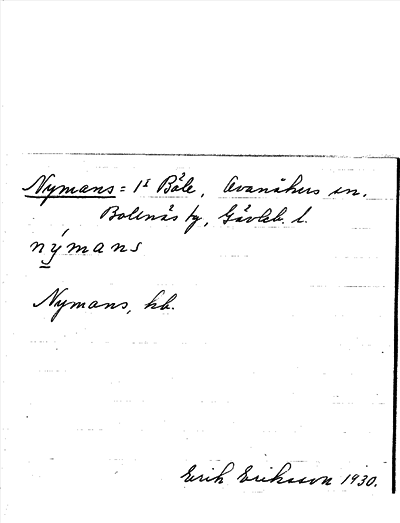 Nymans = 1^I Böle, Ovanåkers sn.
Bollnäs tg, Gävleb. l.
nýmans
Nymans, hb.
Erik Eriksson 1930.